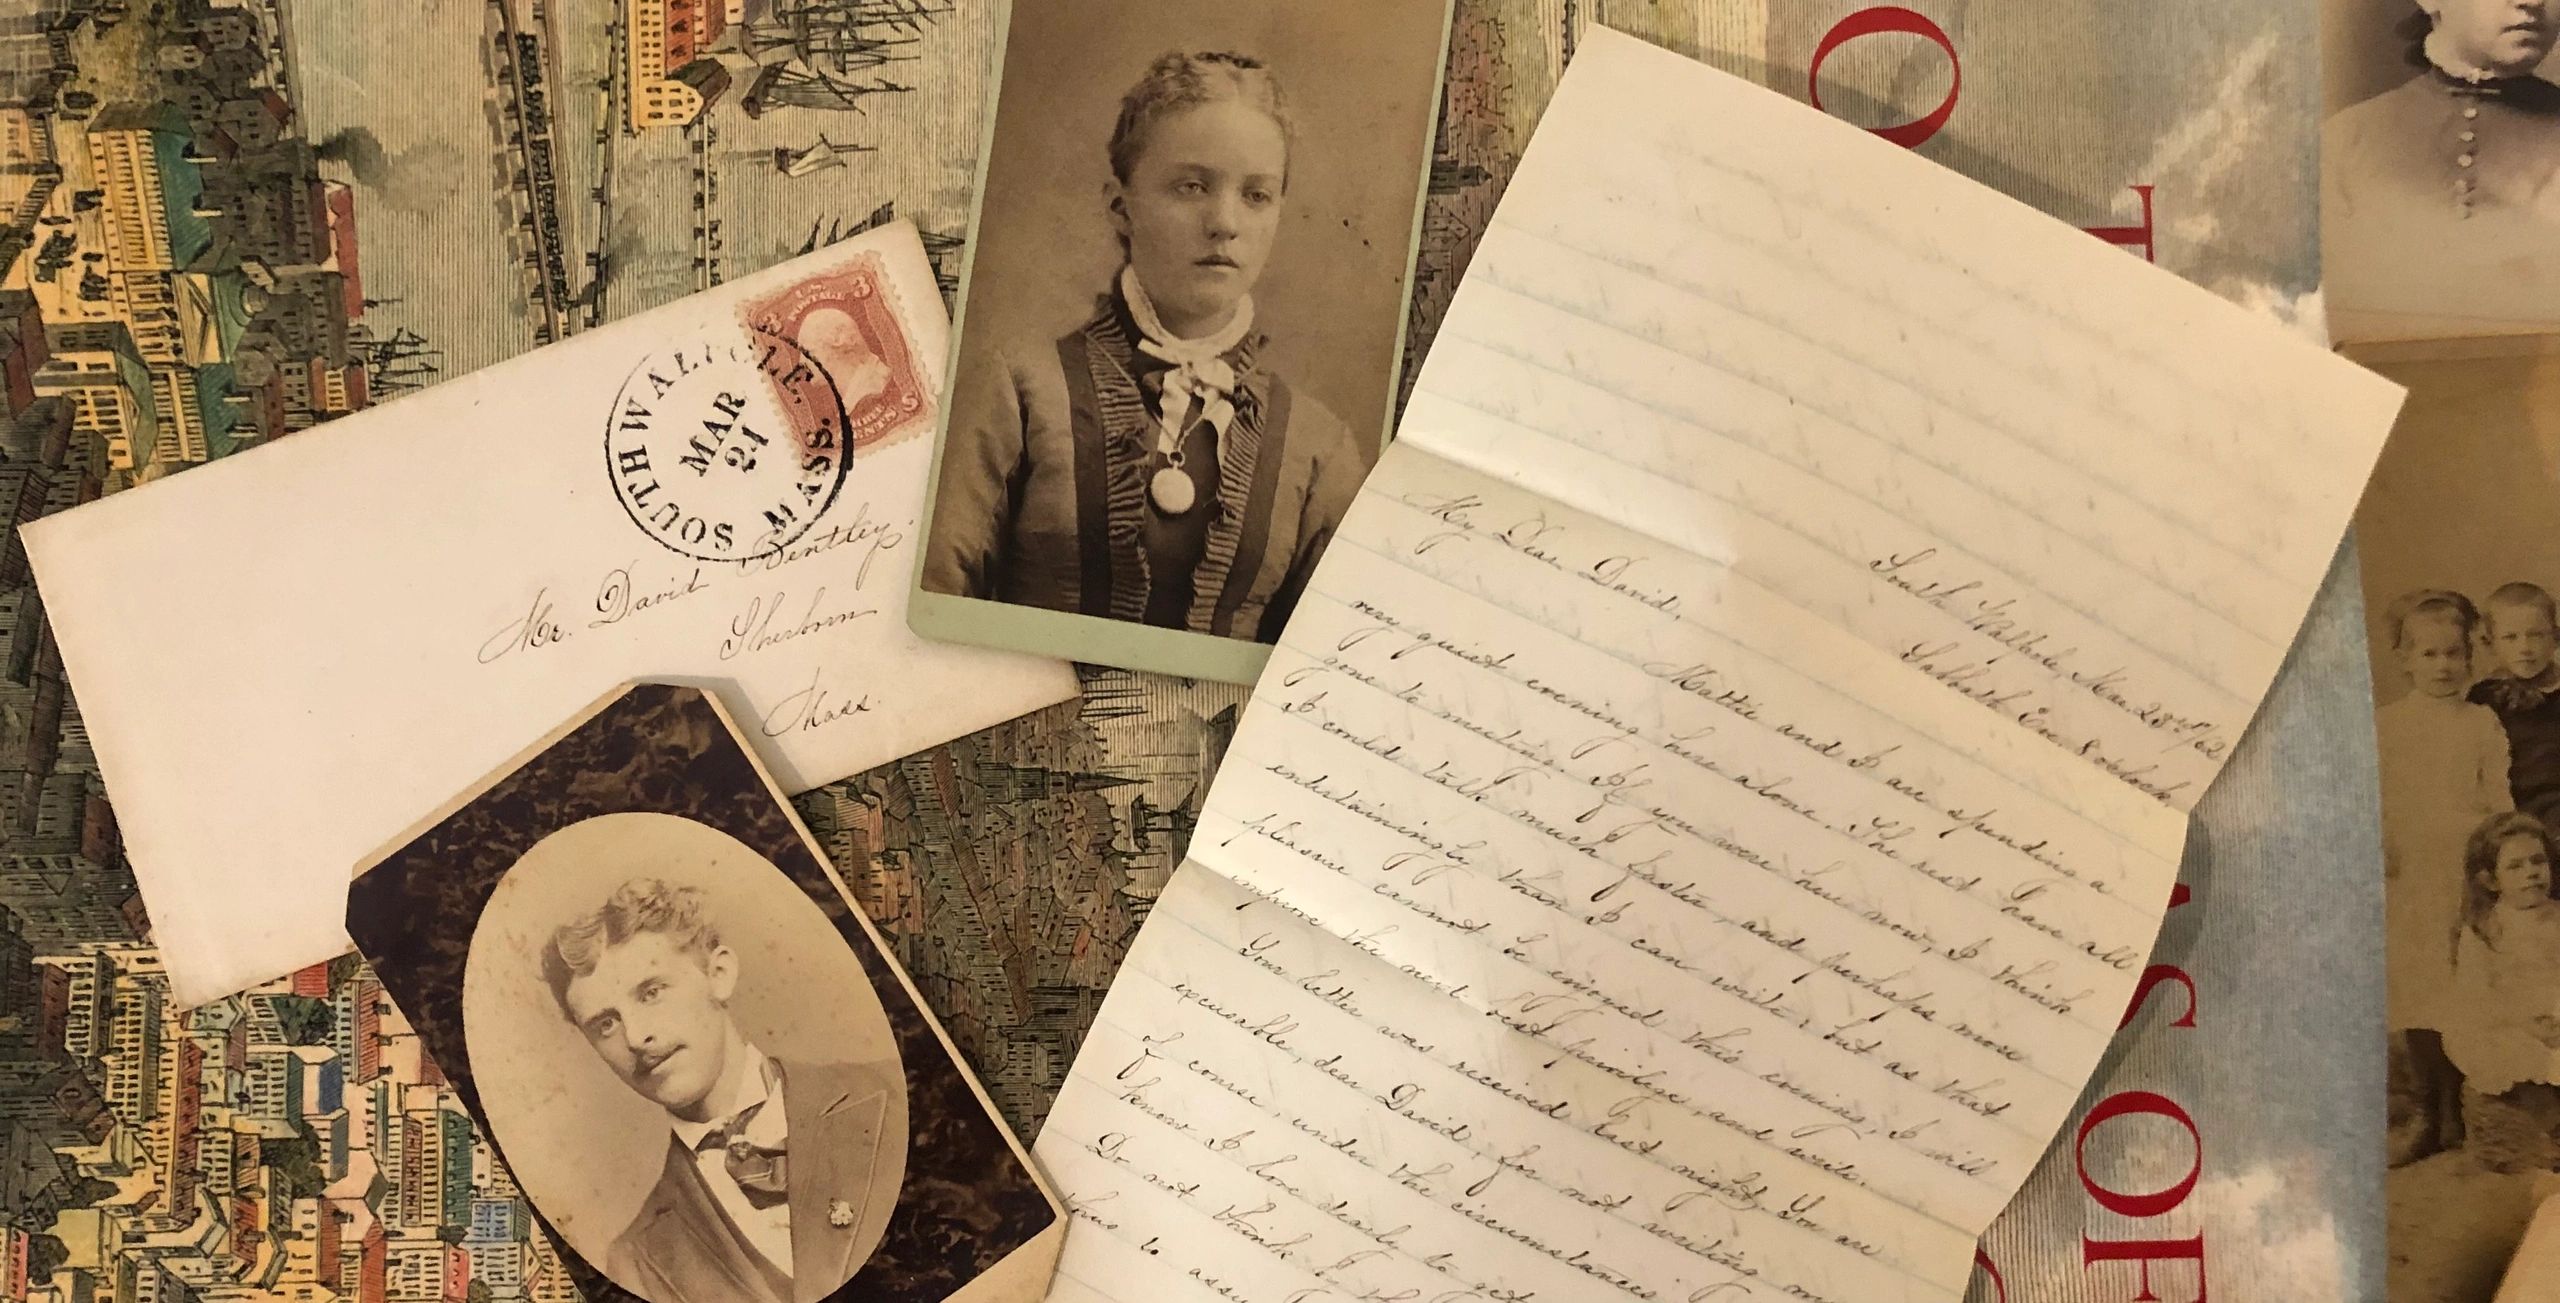 U.S. POSTAGE
3 3
CENTS
SOUTH WALPOLE, MASS.
MAR
21
Mr. David Bentley.
Sherborn
Mass.
South Walpole, Mar. 23rd /62
Sabbath Eve. 8 o'clock,
My Dear David,
Mattie and I are spending a
very quiet evening here alone. The rest have all
gone to meeting. If you were here now, I think
I could talk much faster, and perhaps more
entertainingly than I can write; but as that
pleasure cannot be enjoyed this evening, I will
improve the next best privilege, and write.
Your letter was received last night. You are
excusable, dear David, for not writing m
of course, under the circumstances
know I love dearly to get
Do not think
thus to assu
O
T
AS OF